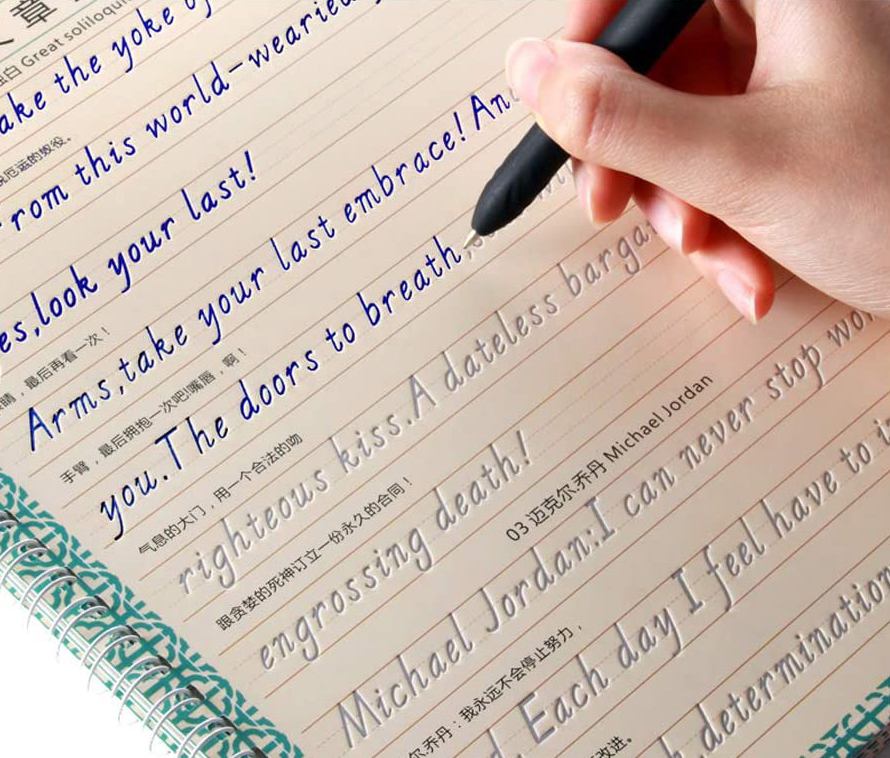 章
独白 Great soliloquie
ake the yoke of
厄运的
From this world-wearied
es,look your last!
，最后再看一次！
Arms,take your last embrace! An
手臂，最后拥抱一次吧!嘴唇，啊！
you.The doors to breath,
气息的大门，用一个合法的吻
righteous kiss.A dateless bargai
跟贪婪的死神订立一份永久的合同！
engrossing death!
03 迈克尔.乔丹 Michael Jordan
Michael Jordan:I can never stop wor
尔.乔丹：我永远不会停止努力，
d. Each day I feel have to i
改进。
determination